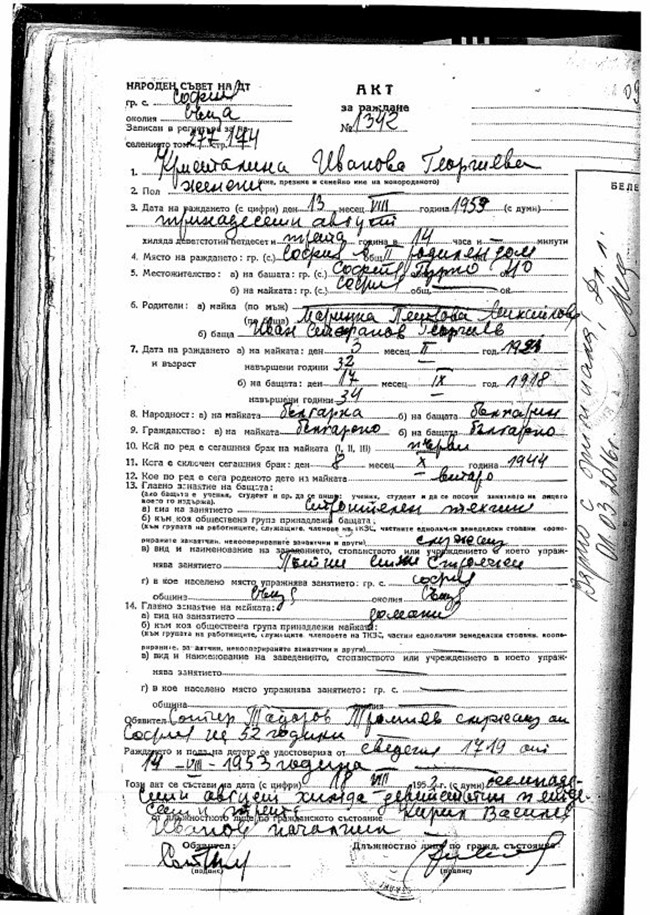 НАРОДЕН СЪВЕТ НА ДТ
АКТ
гр. с. София
за раждане
околия Съща
№ 1342
Записан в регистъра за на-
селението том 277 стр. 174
1. Кристалина Иванова Георгиева
(име, презиме и семейно име на новороденото)
2. Пол женски
3. Дата на раждането (с цифри) ден 13 месец VIII година 1953 (с думи)
тринадесети август
хиляда деветстотин петдесет и трета година в 14 часа и — минути
4. Място на раждането: гр. (с.) София общ. II родилен дом
5. Местожителство: а) на бащата: гр. (с.) София
б) на майката: гр. (с.) София общ. ок.
6. Родители: а) майка (по мъж)
(по баща) Марийка Петкова
б) баща Иван Стефанов Георгиев
7. Дата на раждането а) на майката: ден 3 месец II год.
и възраст навършени години 32 —
б) на бащата: ден 17 месец IX год. 1918
навършени години 34 —
8. Народност: а) на майката българка б) на бащата българин
9. Гражданство: а) на майката българско б) на бащата българско
10. Кой по ред е сегашния брак на майката (I, II, III) първи
11. Кога е сключен сегашния брак: ден 8 месец X година 1944
12. Кое по ред е сега роденото дете из майката — второ
13. Главно занятие на бащата:
(Ако бащата е ученик, студент и пр. да се пише: ученик, студент и да се посочи занятието на лицето което го издържа).
а) вид на занятието строителен техник
б) към коя обществена група принадлежи бащата:
(към групата на работниците, служащите, членове на ТКЗС, частните еднолични земеделски стопани, коопе-
рираните занаятчии, некооперираните занаятчии и други) служащ
в) вид и наименование на заведението, стопанството или учреждението в което упраж-
нява занятието
г) в кое населено място упражнява занятието: гр. с. София
община Съща околия Съща
14. Главно занятие на майката:
а) вид на занятието домакиня
б) към коя обществена група принадлежи майката:
(към групата на работниците, служащите, членовете на ТКЗС, частни еднолични земеделски стопани, коопе-
рираните, занаятчии, некооперираните занаятчии и други)
в) вид и наименование на заведението, стопанството или учреждението в което упраж-
нява занятието
г) в кое населено място упражнява занятието: гр. с.
община околия
Обявител Тодоров служащ от
София на 52 години
Раждането и пола на детето се удостоверява от сведения 1719 от
14 - VIII - 1953 година
Този акт се състави на дата (с цифри) 18 VIII 1953 г. (с думи) осемнаде-
сети август хиляда деветстотин петде-
сет и трета Кирил Василев
от длъжностното лице по гражданското състояние
Иванов началник
Обявител: Длъжностно лице по гражд. състояние:
(подпис) (подпис)
БЕЛЕ
Вярно с оригинала!
01.3.2016г.